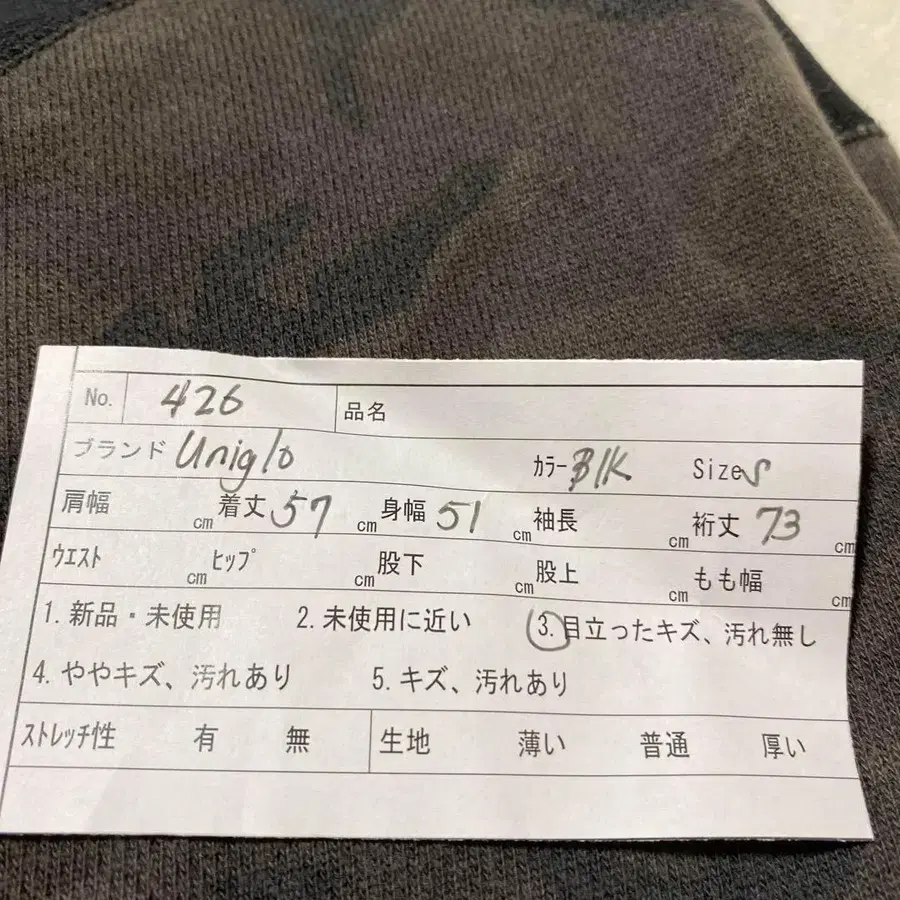 No. 426 品名
ブランド Uniglo カラー Blk Size S
肩幅 cm 着丈 57 cm 身幅 51 cm 袖長 cm 裄丈 73 cm
ウエスト cm ヒップ cm 股下 cm 股上 cm もも幅 cm
1. 新品・未使用 2. 未使用に近い 3. 目立ったキズ、汚れ無し
4. ややキズ、汚れあり 5. キズ、汚れあり
ストレッチ性 有 無 生地 薄い 普通 厚い